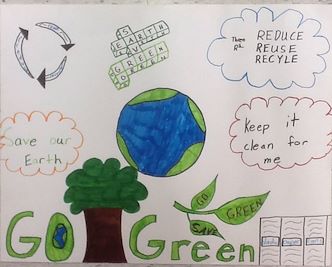 SAVE
EARTH
GREEN
Three
Rs
REDUCE
REUSE
RECYLE
Save our
Earth
Keep it
clean for
me
GO Green
GO
GREEN
SAVE